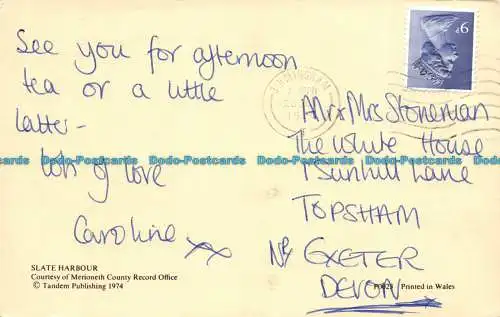 See you for afternoon
tea or a little
latter -
lots of love
Caroline xx
SLATE HARBOUR
Courtesy of Merioneth County Record Office
© Tandem Publishing 1974
9P
Mr & Mrs Stoneman
The White House
1 Sunhill Lane
TOPSHAM
Nr EXETER
DEVON
Printed in Wales
Dodo-Postcards Dodo-Postcards Dodo-Postcards Dodo-Postcards
Dodo-Postcards Dodo-Postcards Dodo-Postcards Dodo-Postcards